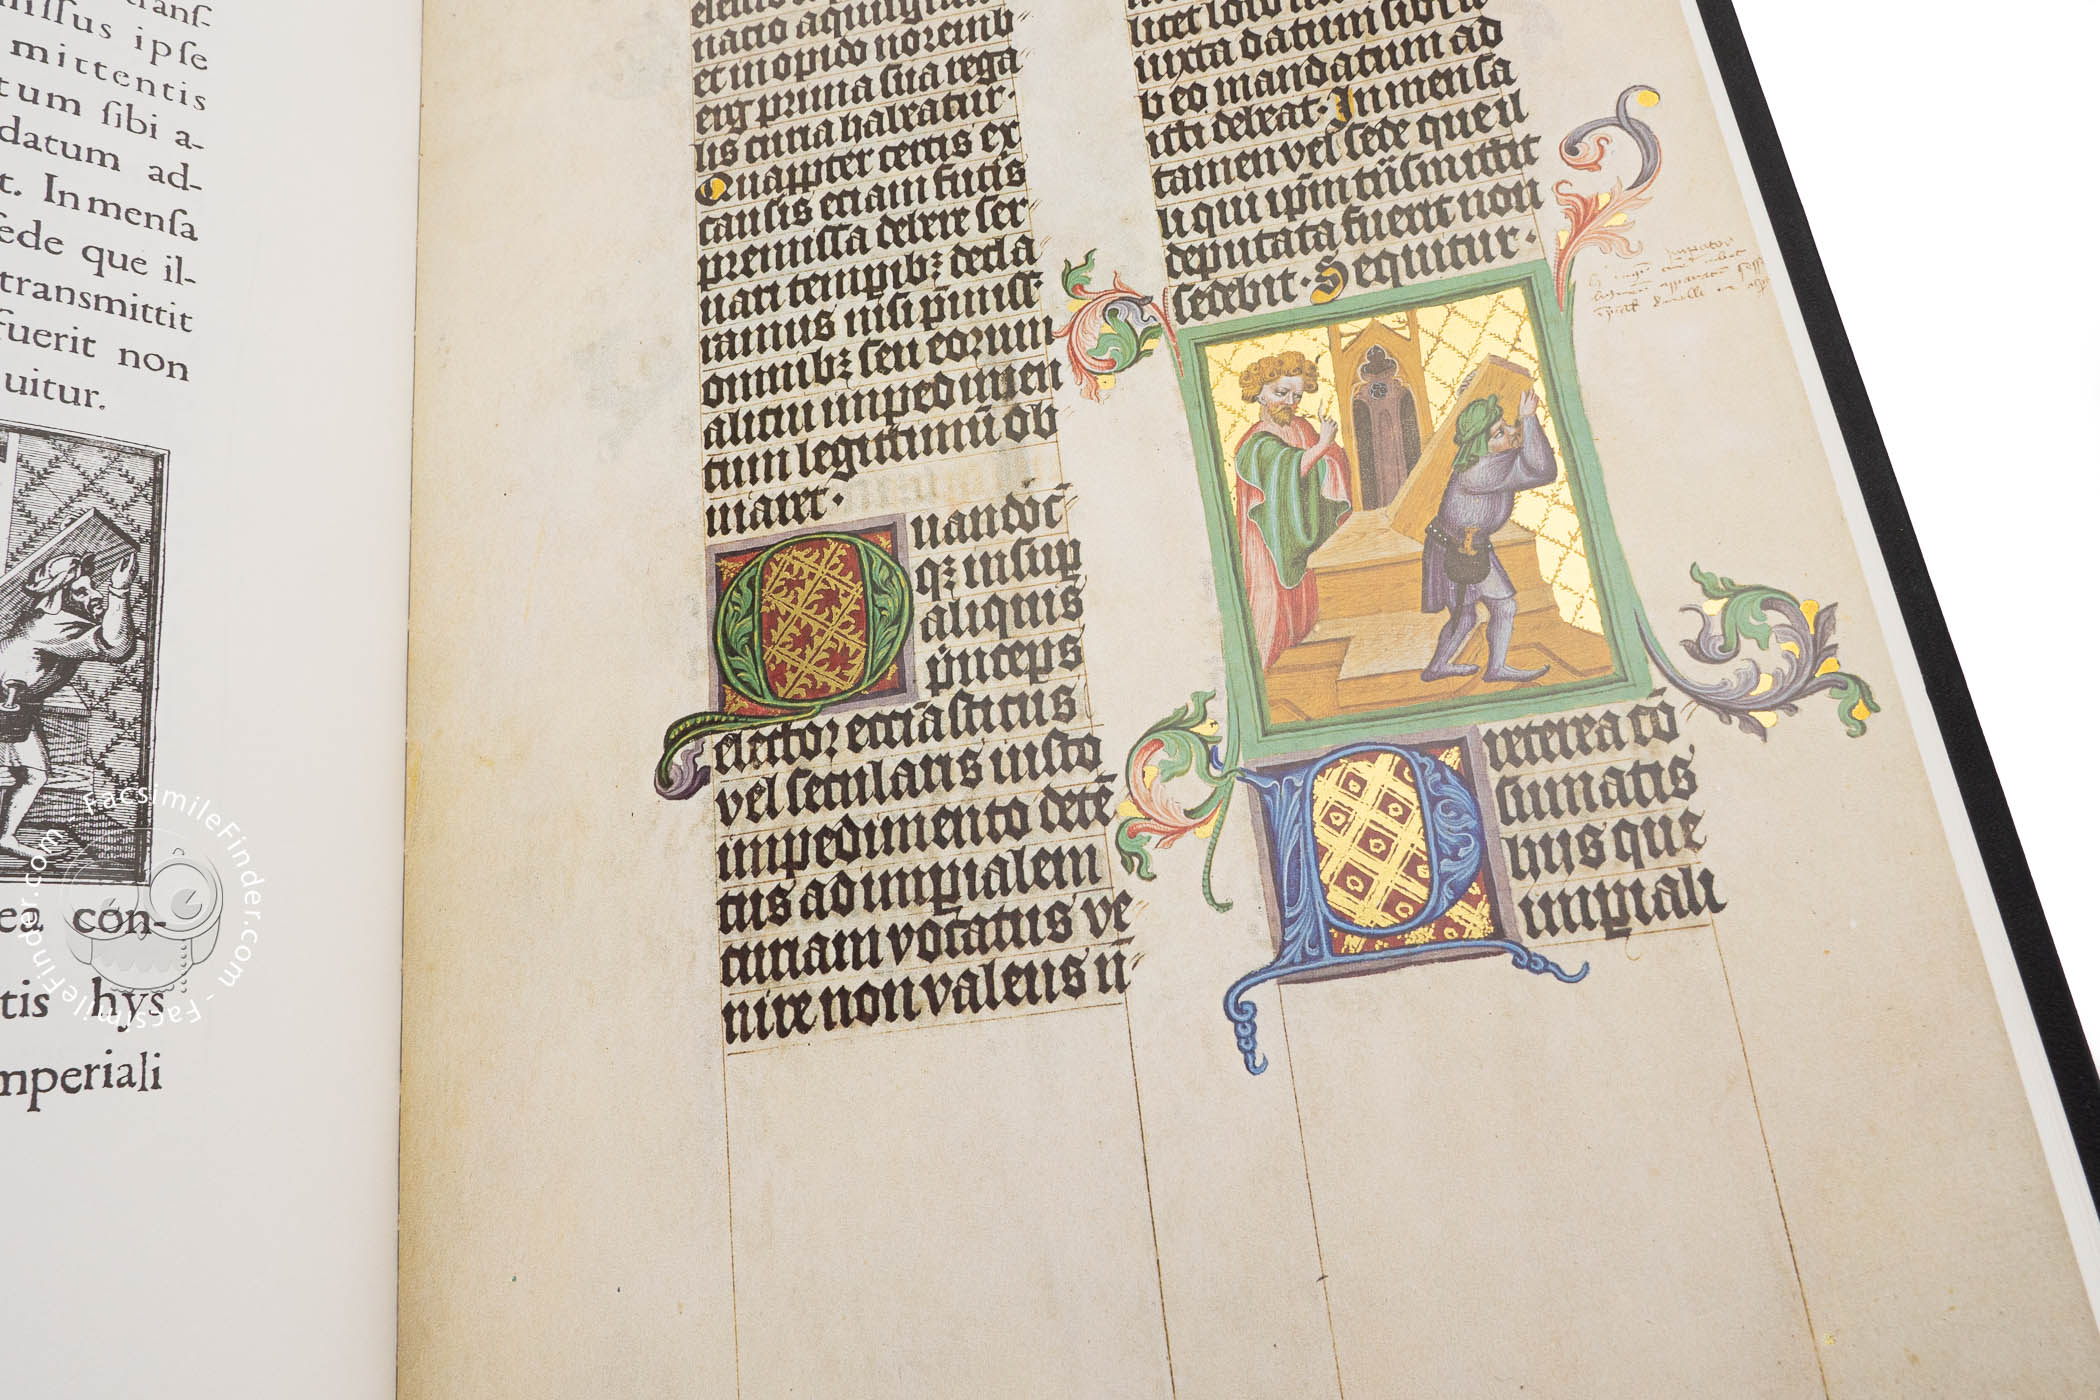 transſ-
miſſus ipſe
mittentis
tum ſibi a-
datum ad-
t. In menſa
ſede que il-
transmittit
fuerit non
uitur.
ea con-
tis hys
mperiali
uatio aquiſgrani
et in opido noremb
erg prima ſua rega
lis curia habeatur.
Quapper certis ex
cauſis eciam futis
premiſſa debere ſer
uari tempibꝫ decla
ramus niſi p̄miſſ
omnibꝫ ſeu eorum
alicui impedimen
tum legittimū ob
uiaret.
Quandoc̄
qꝫ inſup
aliquis
p̄nceps
elector eccl̄aſticus
vel ſecularis iuſto
impedimento detē
tus ad imp̄ialem
curiam vocatus ve
nire non valens ū
licet loco
iuxta datum ſibi a
b eo mandatum ad
itti debeat. In menſa
tamen vel ſede que il
li qui ip̄m tūſmittit
deputata fuerit non
ſedebit. Sequitur.
Preterea cō
ſumatis
hijs que
imp̄iali
FacsimileFinder.com - FacsimileFinder.com -